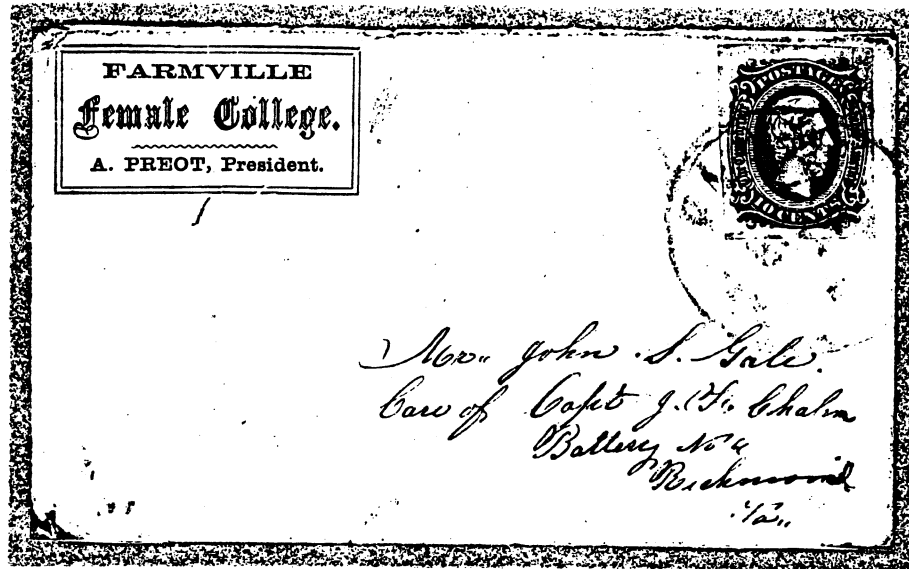 FARMVILLE
Female College.
A. PREOT, President.
POSTAGE
10 CENTS
Mr. John S. Gale.
Care of Capt J. Chalm
Battery No
Richmond
Va.